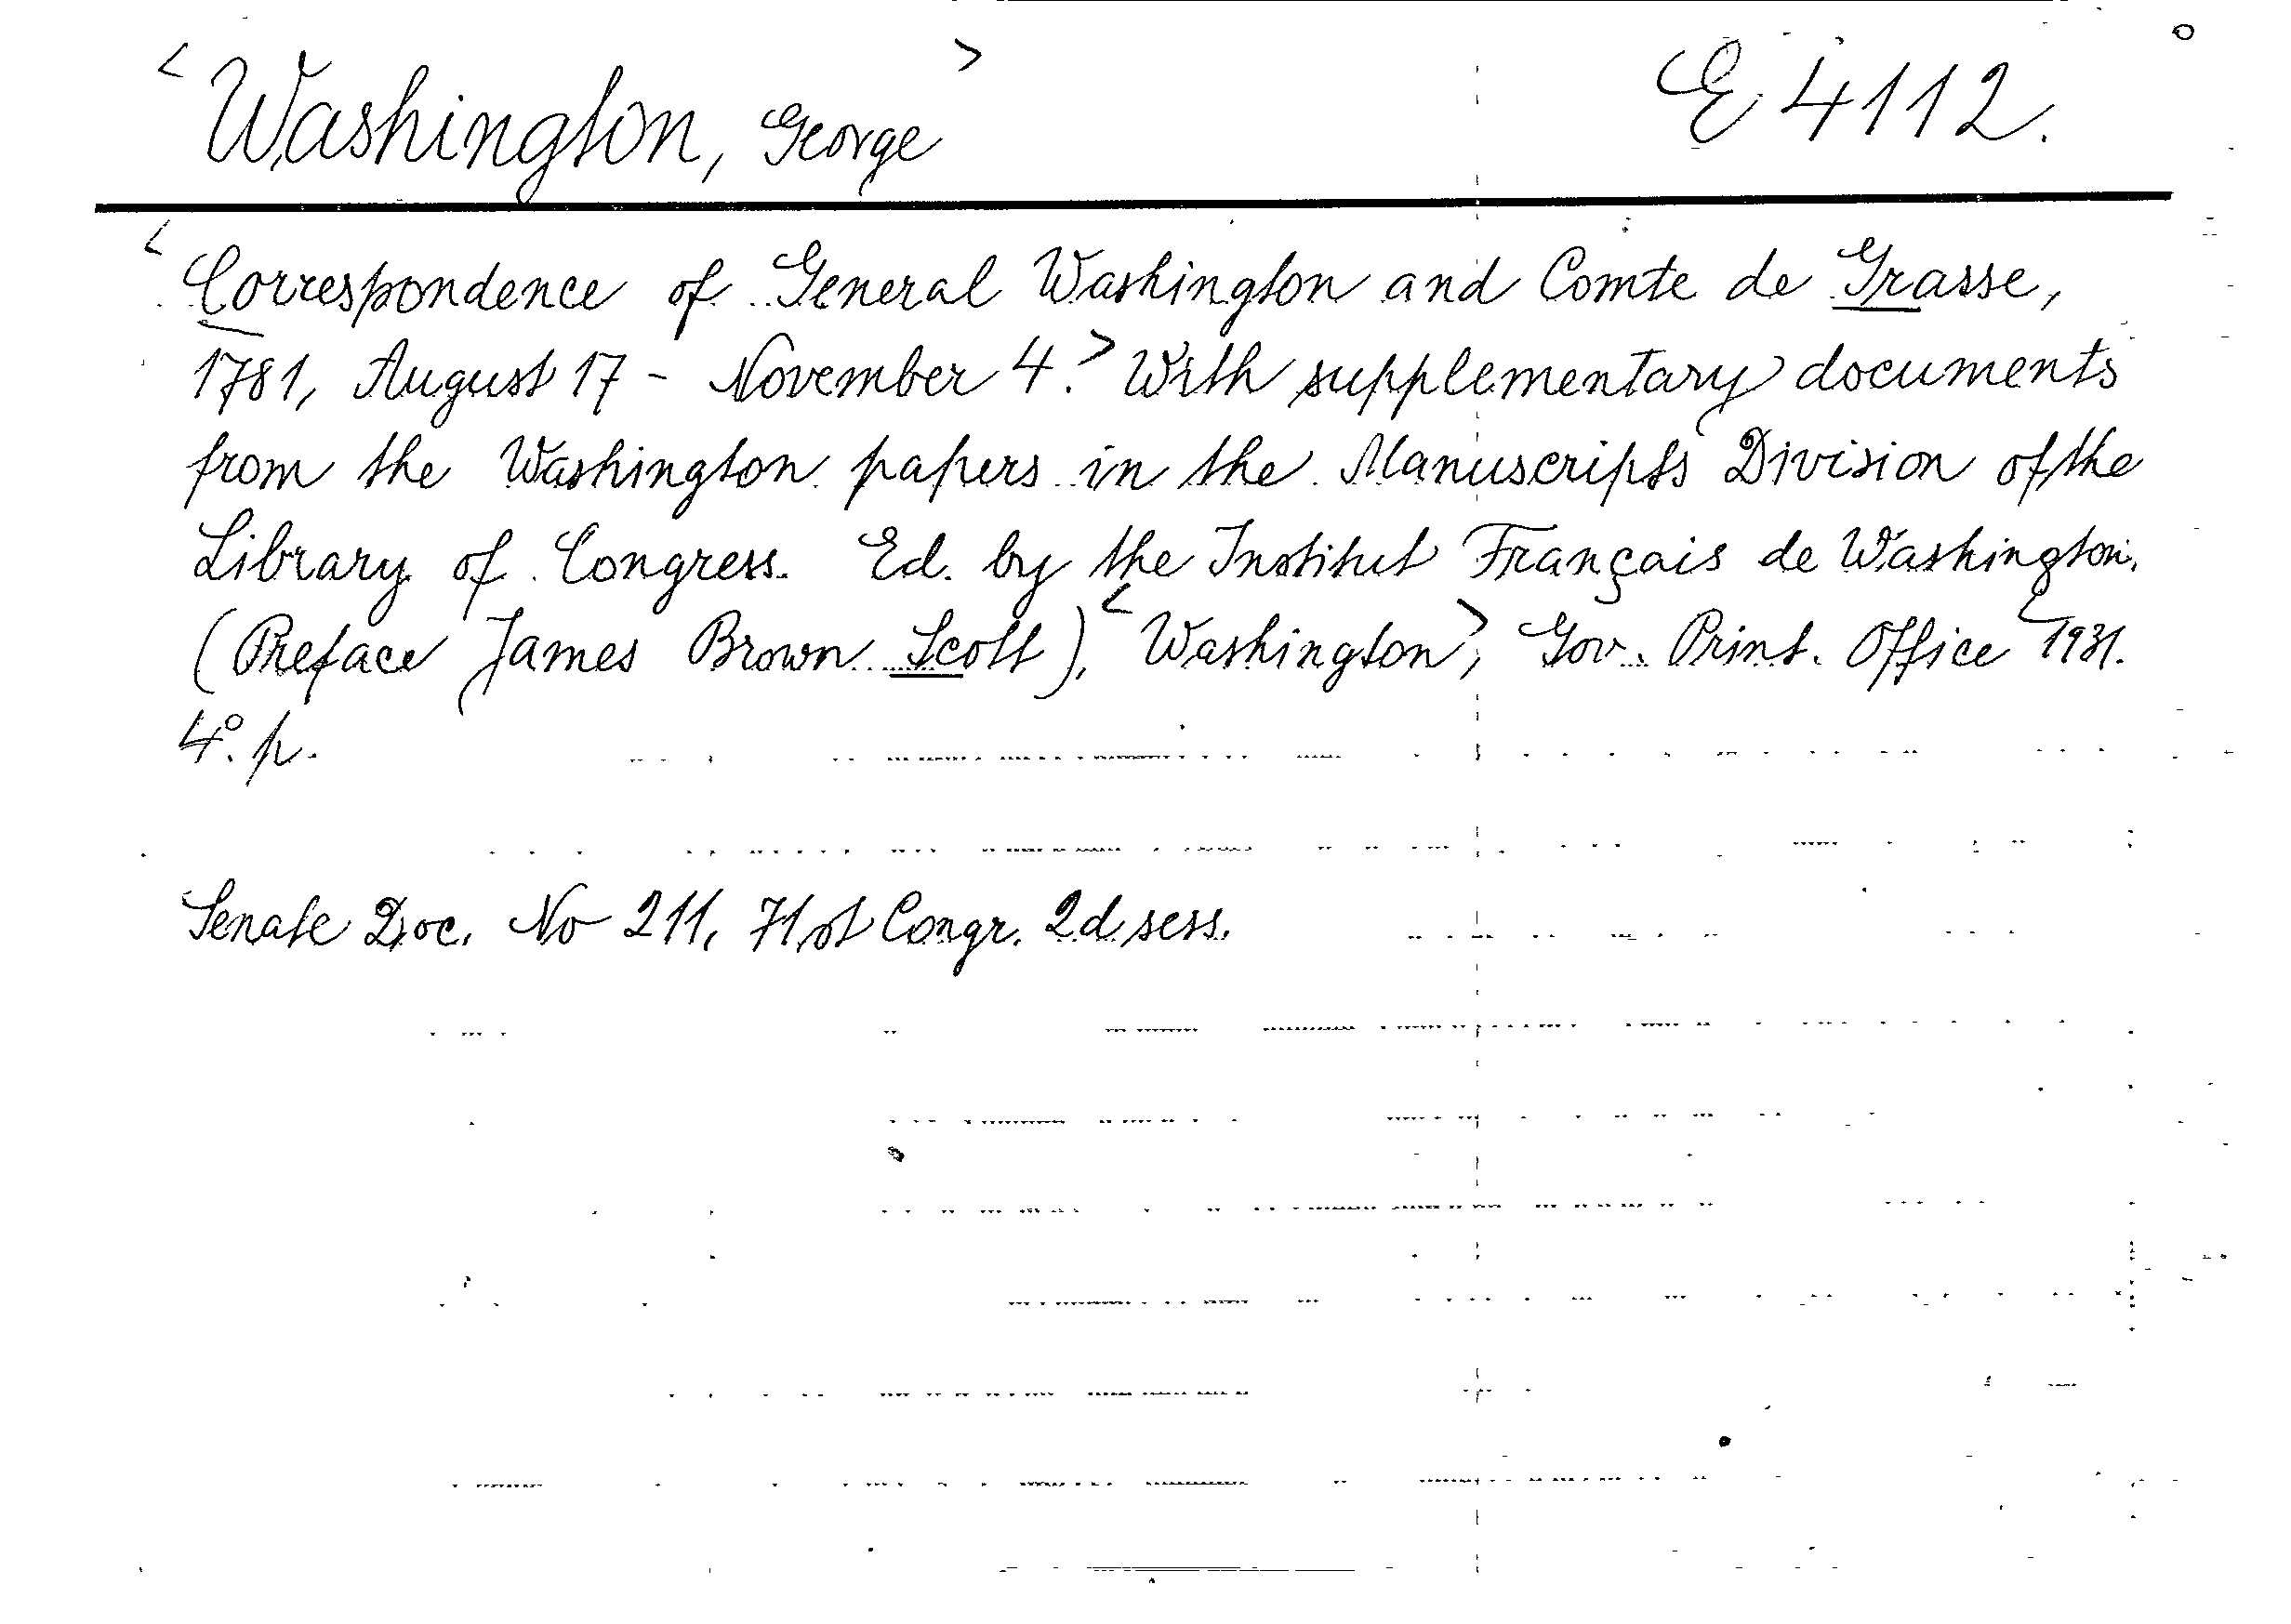 <Washington, George>
E 4112.
<Correspondence of General Washington and Comte de Grasse,
1781, August 17 - November 4.> With supplementary documents
from the Washington papers in the Manuscripts Division of the
Library of Congress. Ed. by the Institut Français de Washington.
(Preface James Brown Scott). <Washington>, Gov. Print. Office <1931.
4°. p.
Senate Doc. No 211, 71st Congr. 2d sess.